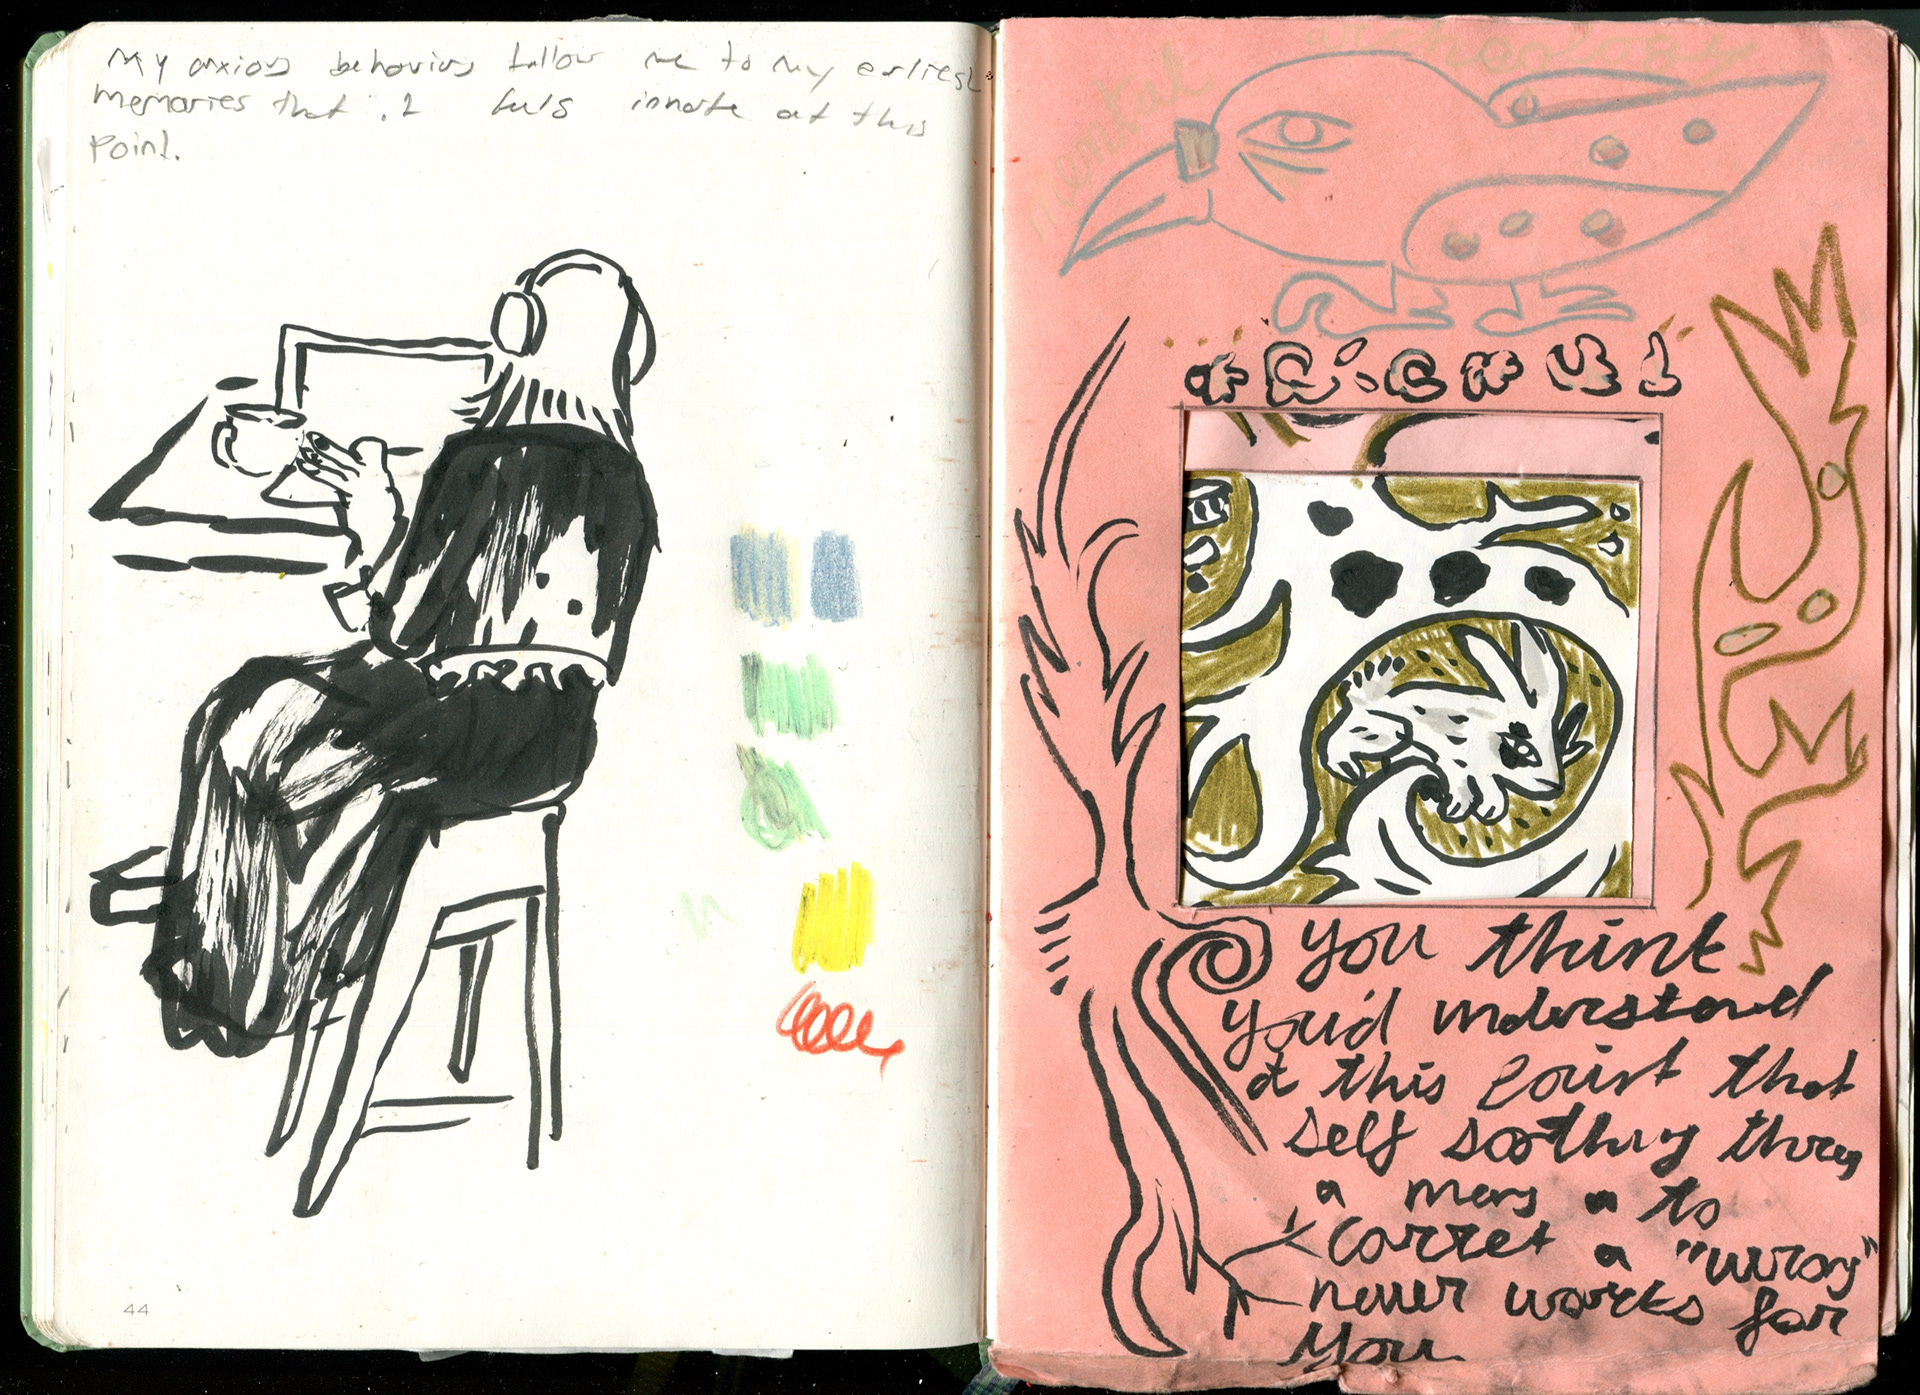 My anxios behaviors follow me to my earliest
memories that it feels innate at this
point.
44
mental
You think
you'd understand
at this point that
self soothing
a to
corret a "wrong"
never works for
you.